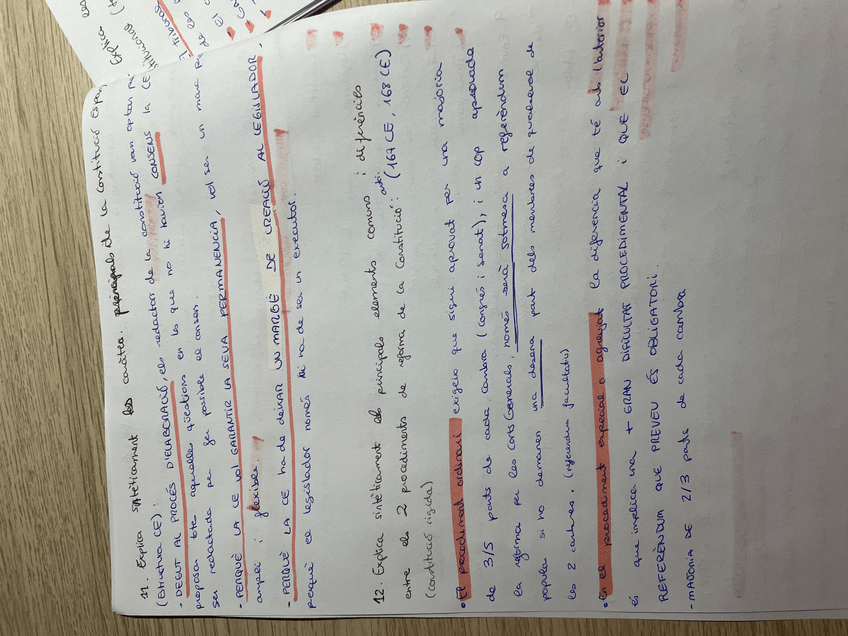 11. Explica sintèticament les caràcter. principals de la Constitució Espa
(Estructura CE):
- DEGUT AL PROCÉS D'ELABORACIÓ, els redactor de la constitució van optar pe
proposar tote aquelles qüestions en lo que no hi havien CONSENS la CE
ser redactada per fer posible el consen.
- PERQUÈ LA CE VOL GARANTIR LA SEVA PERMANENCIA, vol ser un marc
ampli i flexible.
- PERQUÈ LA CE ha de deixar UN MARGE DE CREACIÓ AL LEGISLADOR,
perquè el legislador només ha de ser un executor.
12. Explica sintèticament els principals elements comuns i diferències
entre els 2 procediments de reforma de la Constitució: arts. (167 CE, 168 CE)
(constitució rígida)
• El procediment ordinari exigeix que sigui aprovat per una majoria
de 3/5 parts de cada cambra (congrés i senat), i un cop aprovada
la reforma per les Corts Generals, només serà sotmesa a referèndum
popular si ho demanen una desena part dels membres de qualsevol de
les 2 cambres. (referendum facultatiu)
• En el procediment especial o agreujat la diferencia que té amb l'anterior
és que implica una + GRAN DIFICULTAT PROCEDIMENTAL i QUE EL
REFERÈNDUM QUE PREVEU ÉS OBLIGATORI.
- MAJORIA DE 2/3 parts de cada cambra